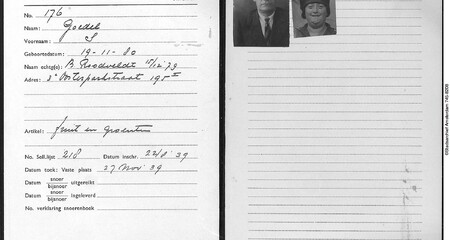 No. 176
Naam: Goedel
Voornaam: S
Geboortedatum: 19-11-80
Naam echtg(e): B Roodveldt 15/12 79
Adres: 3e Oosterparkstraat 195 II
Artikel: fruit en groenten
No. Soll.lijst 218 Datum inschr. 22/8 '39
Datum toek: Vaste plaats 27 Nov '39
Datum snoer bijsnoer uitgereikt
Datum snoer bijsnoer ingeleverd
No. verklaring snoerenhoek